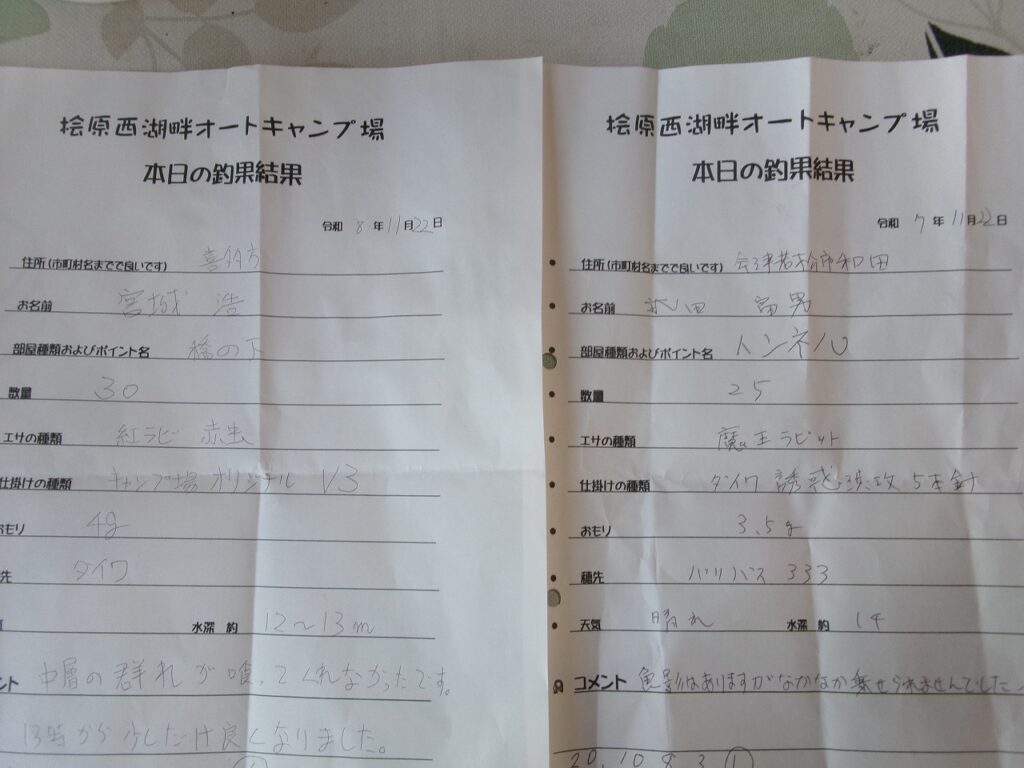 桧原西湖畔オートキャンプ場
本日の釣果結果
令和 8 年 11月22日
住所(市町村名までで良いです) 喜多方
お名前 宮城 浩
部屋種類およびポイント名 橋の下
数量 30
エサの種類 紅ラビ 赤虫
仕掛けの種類 キャンプ場オリジナル V3
おもり 4g
先 ダイワ
水深 約 12~13m
ント 中層の群れが喰ってくれなかったです。
13時から少しだけ良くなりました。
桧原西湖畔オートキャンプ場
本日の釣果結果
令和 7 年 11月22日
住所(市町村名までで良いです) 会津若松市和田
お名前 富男
部屋種類およびポイント名 トンネル
数量 25
エサの種類 魔王ラビット
仕掛けの種類 ダイワ 誘惑 速攻 5本針
おもり 3.5g
穂先 バリバス 333
天気 晴れ 水深 約 14
コメント 魚影はありますがなかなか乗せられませんでした
20.10 8 3 ①